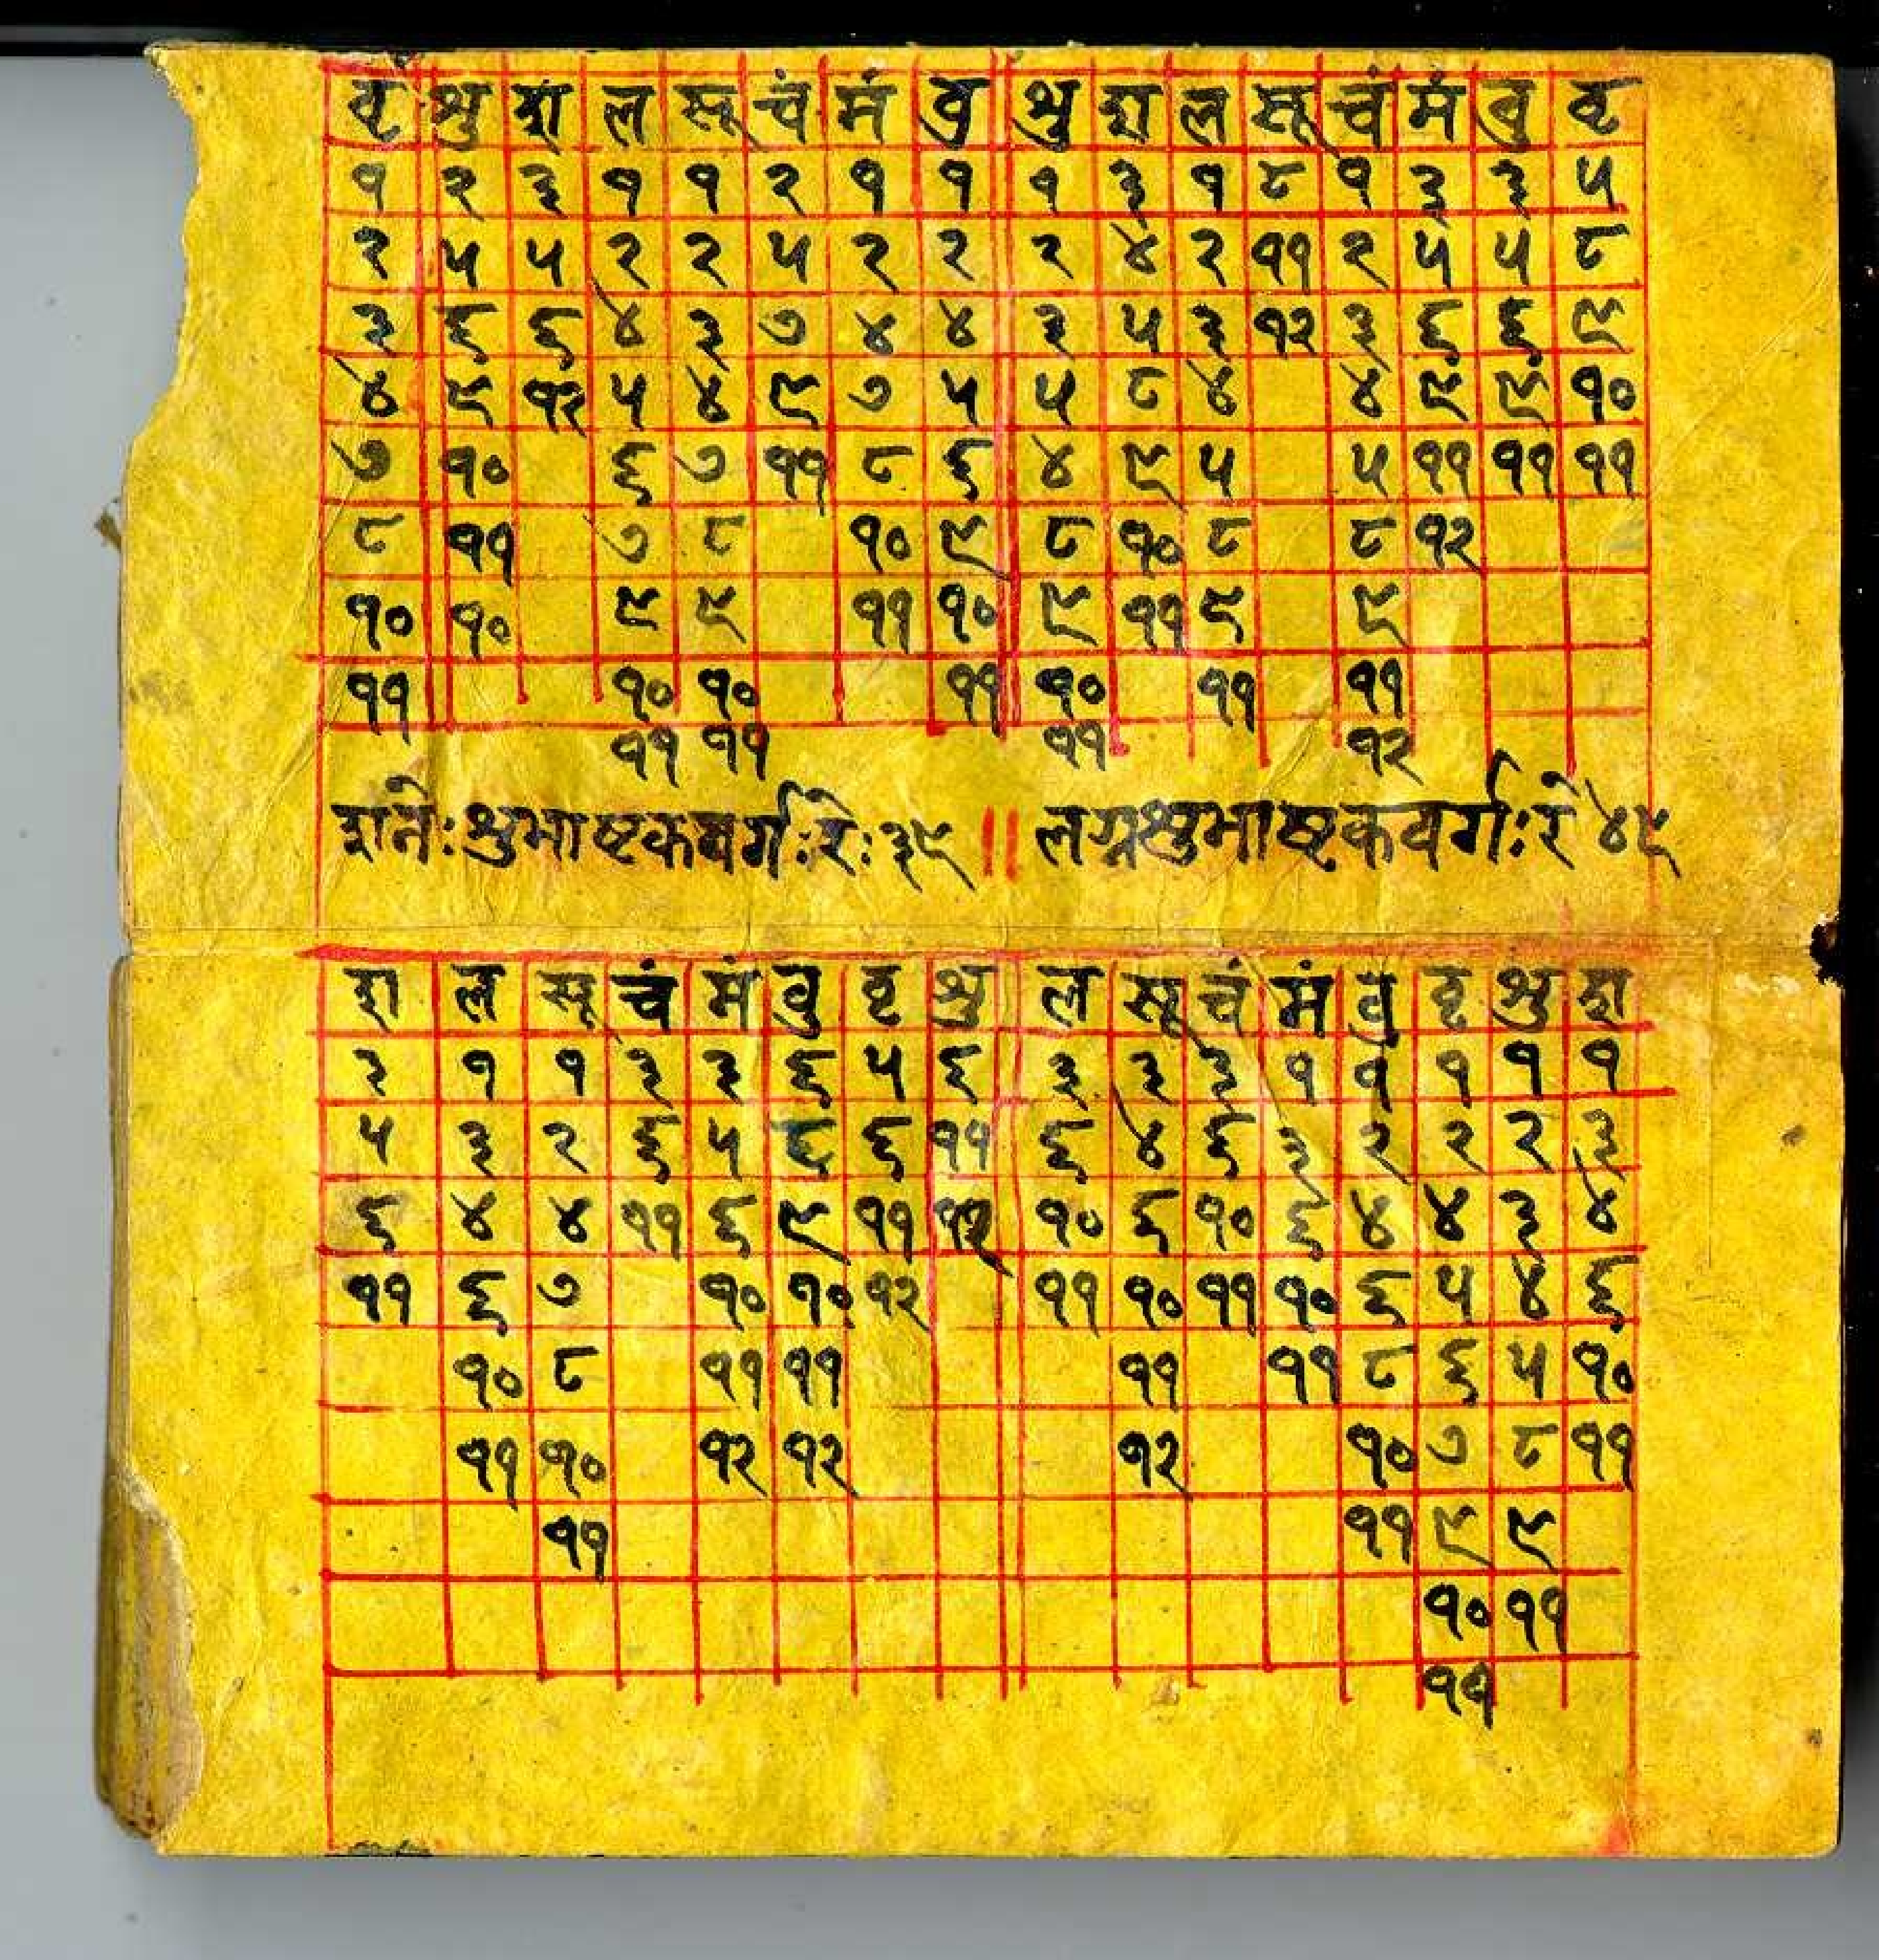 वृ शु श ल सू चं मं बु शु श ल सू चं मं बु वृ
१ २ ३ १ १ २ १ १ १ ३ १ ८ १ ३ ३ ५
२ ५ ५ २ २ ५ २ २ २ ४ २ ११ २ ५ ५ ८
३ ६ ६ ४ ३ ७ ४ ४ ३ ५ ३ १२ ३ ६ ६ ९
४ ९ १२ ५ ४ ९ ७ ५ ५ ८ ४ ४ ९ ९ १०
७ १० ६ ७ ११ ८ ६ ४ ९ ५ ५ ११ ११ ११
८ ११ ७ ८ १० ९ ८ १० ८ ८ १२
१० १० ९ ९ ११ १० ९ ११ ९ ९
११ १० १० ११ १० ११ ११
११ ११ ११ १२
शनेः शुभाष्टकवर्गः रेः ३९ ॥ लग्नशुभाष्टकवर्गः रे ४९
श ल सू चं मं बु वृ शु ल सू चं मं बु वृ शु श
३ १ १ ३ ३ ६ ५ ६ ३ ३ ३ १ १ १ १ १
५ ३ २ ६ ५ ८ ६ ११ ६ ४ ६ ३ २ २ २ ३
६ ४ ४ ११ ६ ९ ११ १२ १० ६ १० ६ ४ ४ ३ ४
११ ६ ७ १० १० १२ ११ १० ११ १० ६ ५ ४ ६
१० ८ ११ ११ ११ ११ ८ ६ ५ १०
११ १० १२ १२ १२ १० ७ ८ ११
११ ११ ९ ९
१० ११
११